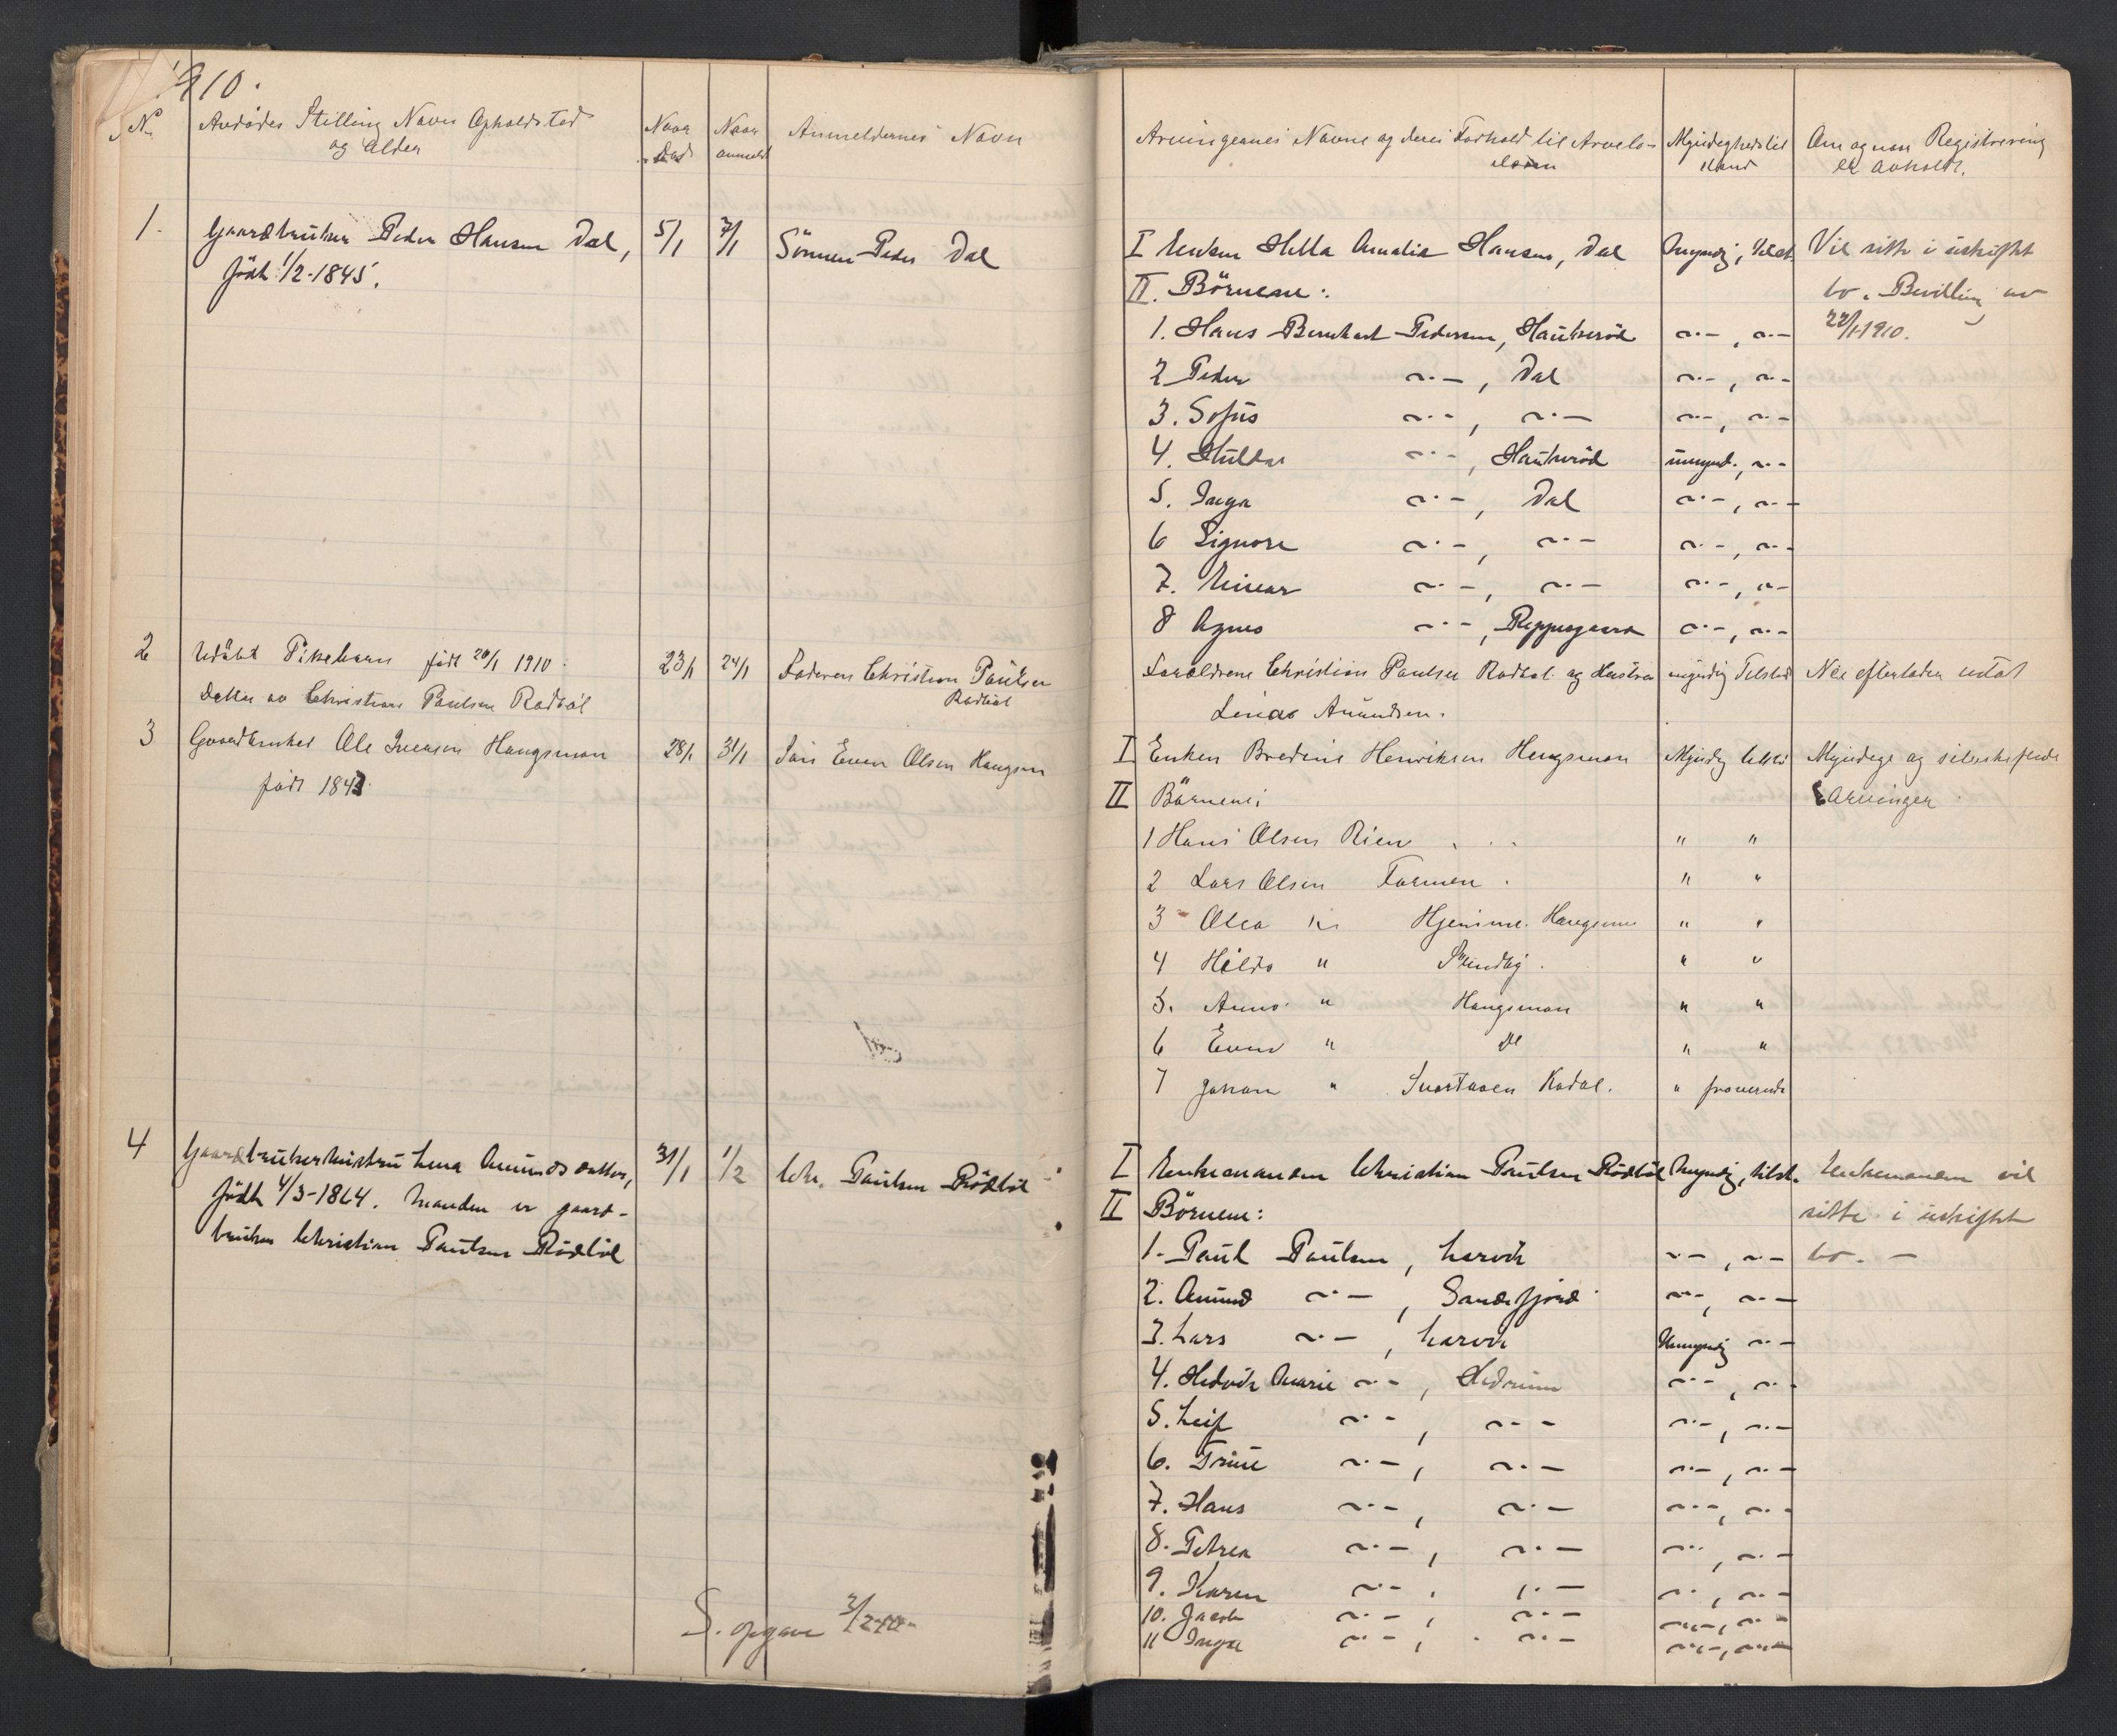 1910.
No. Avdödes Stilling Navn Opholdsted Naar Naar Anmeldernes Navn
og Alder död anmeldt
1. Gaardbruker Peder Hansen Dal, 5/1 7/1 Sönnen Peder Dal
född 1/2-1845.
2 Udöbt Pikebarn född 20/1 1910. 23/1 24/1 Faderen Christian Paulsen
Datter av Christian Paulsen Rödböl Rödböl
3 Gaardbruker Ole Iversen Haugsmon 28/1 31/1 Sön Even Olsen Haugsm
född 1843
4 Gaardbrukerhustru Lena Amundsdatter, 31/1 1/2 Chr. Paulsen Rödböl
född 4/3-1864. Manden er gaard-
bruker Christian Paulsen Rödböl
S. opgave 3/2-10-
Arvingernes Navne og deres Forhold til Arvela- Myndighedstil Om og naar Registrering
deren stand er avholdt.
I Enken Hella Amalie Hansen, Dal Myndig, tilst. Vil sitte i uskiftet
II. Börnene: bo. Bevilling av
1. Hans Bernhart Pedersen, Hautveröd -"-, -"- 22/1 1910.
2 Peder -"-, Dal -"-, -"-
3. Sofus -"-, -"- -"-, -"-
4. Hulda -"-, Hautveröd umynd., -"-
5. Inga -"-, Dal -"-, -"-
6 Signora -"-, -"- -"-, -"-
7. Einar -"-, -"- -"-, -"-
8 Agnes -"-, Reppesgaard -"-, -"-
Forældrene Christian Paulsen Rödböl og Hustru myndig Tilsted Nei efterlader intet
Lina Amundsen.
I Enken Bredine Henriksen Haugsmon Myndig tilsted Myndige og selvskiftende
II Börnene: Arvinger
1 Hans Olsen Rien " "
2 Lars Olsen Farmen " "
3 Olea " Hjemme Haugsmon " "
4 Hilda " Sundby. " "
5. Anna " Haugsmon " "
6 Even " do " "
7 Johan " Svartaasen Kodal. " fraværende
I Enkemanden Christian Paulsen Rödböl Myndig, tilst. Enkemanden vil
II Börnene: sitte i uskiftet
1. Paul Paulsen, Larvik -"-, -"- bo. -
2. Amund -"-, Sandefjord -"-, -"-
3. Lars -"-, Larvik Umyndig -"-
4. Hedvik Marie -"-, Hedrum -"-, -"-
5. Leif -"-, -"- -"-, -"-
6. Trine -"-, -"- -"-, -"-
7. Hans -"-, -"- -"-, -"-
8. Petrea -"-, -"- -"-, -"-
9. Karen -"-, -"- -"-, -"-
10. Jacob -"-, -"- -"-, -"-
11 Inga -"-, -"- -"-, -"-